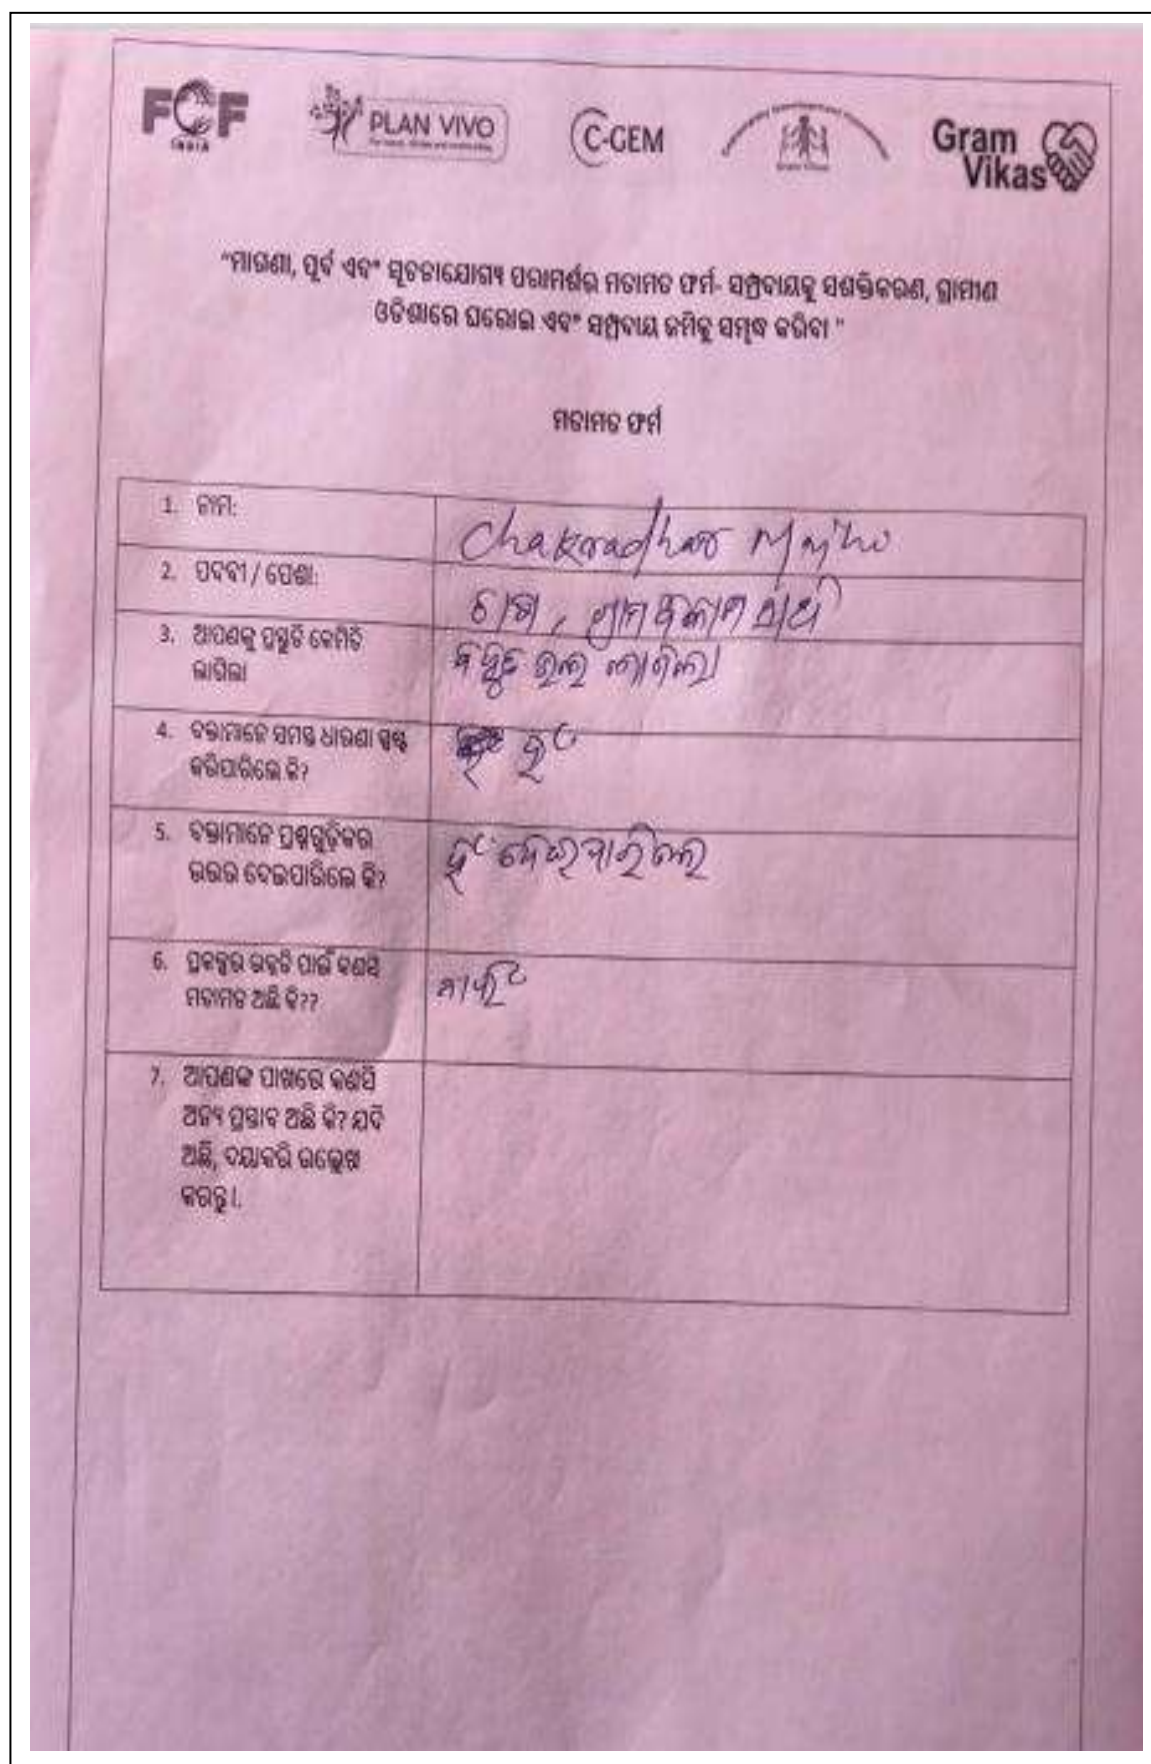 FCF
INDIA
PLAN VIVO
C-GEM
Gram
Vikas
"ମାଗଣା, ପୂର୍ବ ଏବଂ ସୂଚନାଯୋଗ୍ୟ ପରାମର୍ଶର ମତାମତ ଫର୍ମ- ସମ୍ପ୍ରଦାୟକୁ ସଶକ୍ତିକରଣ, ଗ୍ରାମୀଣ
ଓଡିଶାରେ ଘରୋଇ ଏବଂ ସମ୍ପ୍ରଦାୟ ଜମିକୁ ସମୃଦ୍ଧ କରିବା "
ମତାମତ ଫର୍ମ
1. ନାମ:
Chakradhar Majhi
2. ପଦବୀ / ପେଶା:
ଚାଷ, ଗ୍ରାମ ବିକାଶ ସାଥୀ
3. ଆପଣଙ୍କୁ ପ୍ରସ୍ତୁତି କେମିତି
ଲାଗିଲା
ବହୁତ ଭଲ ଲାଗିଲା
4. ବକ୍ତାମାନେ ସମସ୍ତ ଧାରଣା ସ୍ପଷ୍ଟ
କରିପାରିଲେ କି?
ହଁ
5. ବକ୍ତାମାନେ ପ୍ରଶ୍ନଗୁଡ଼ିକର
ଉତ୍ତର ଦେଇପାରିଲେ କି?
ହଁ ଦେଇପାରିଲେ
6. ପ୍ରକଳ୍ପର ଉନ୍ନତି ପାଇଁ କଣସି
ମତାମତ ଅଛି କି??
ନାହିଁ
7. ଆପଣଙ୍କ ପାଖରେ କଣସି
ଅନ୍ୟ ପ୍ରସ୍ତାବ ଅଛି କି? ଯଦି
ଅଛି, ଦୟାକରି ଉଲ୍ଲେଖ
କରନ୍ତୁ।.